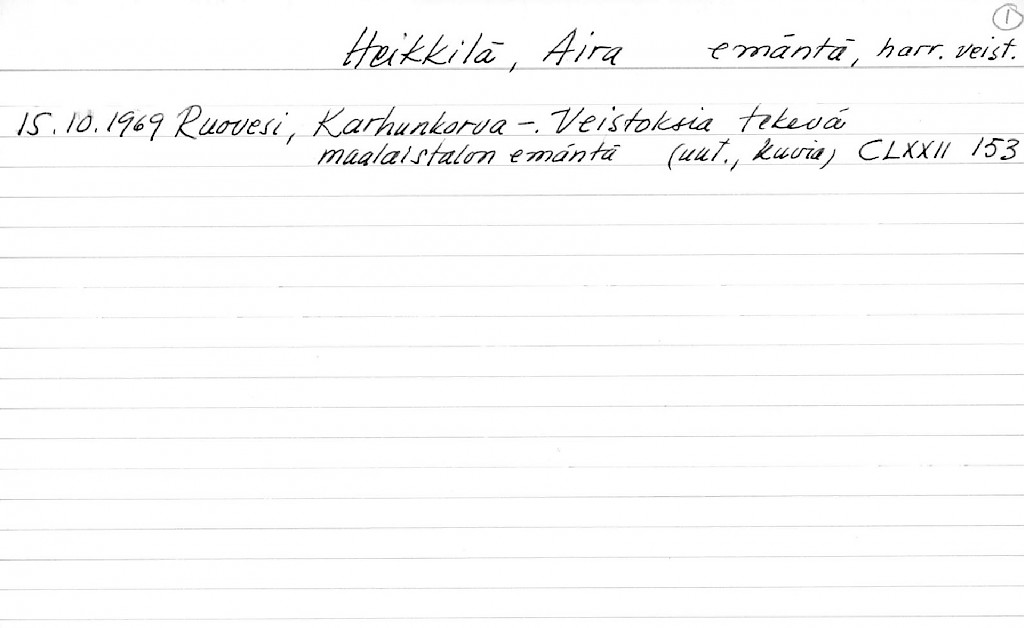 1
Heikkilä, Aira emäntä, harr. veist.
15.10.1969 Ruovesi, Karhunkorva -. Veistoksia tekevä
maalaistalon emäntä (uut., kuvia) CLXXII 153